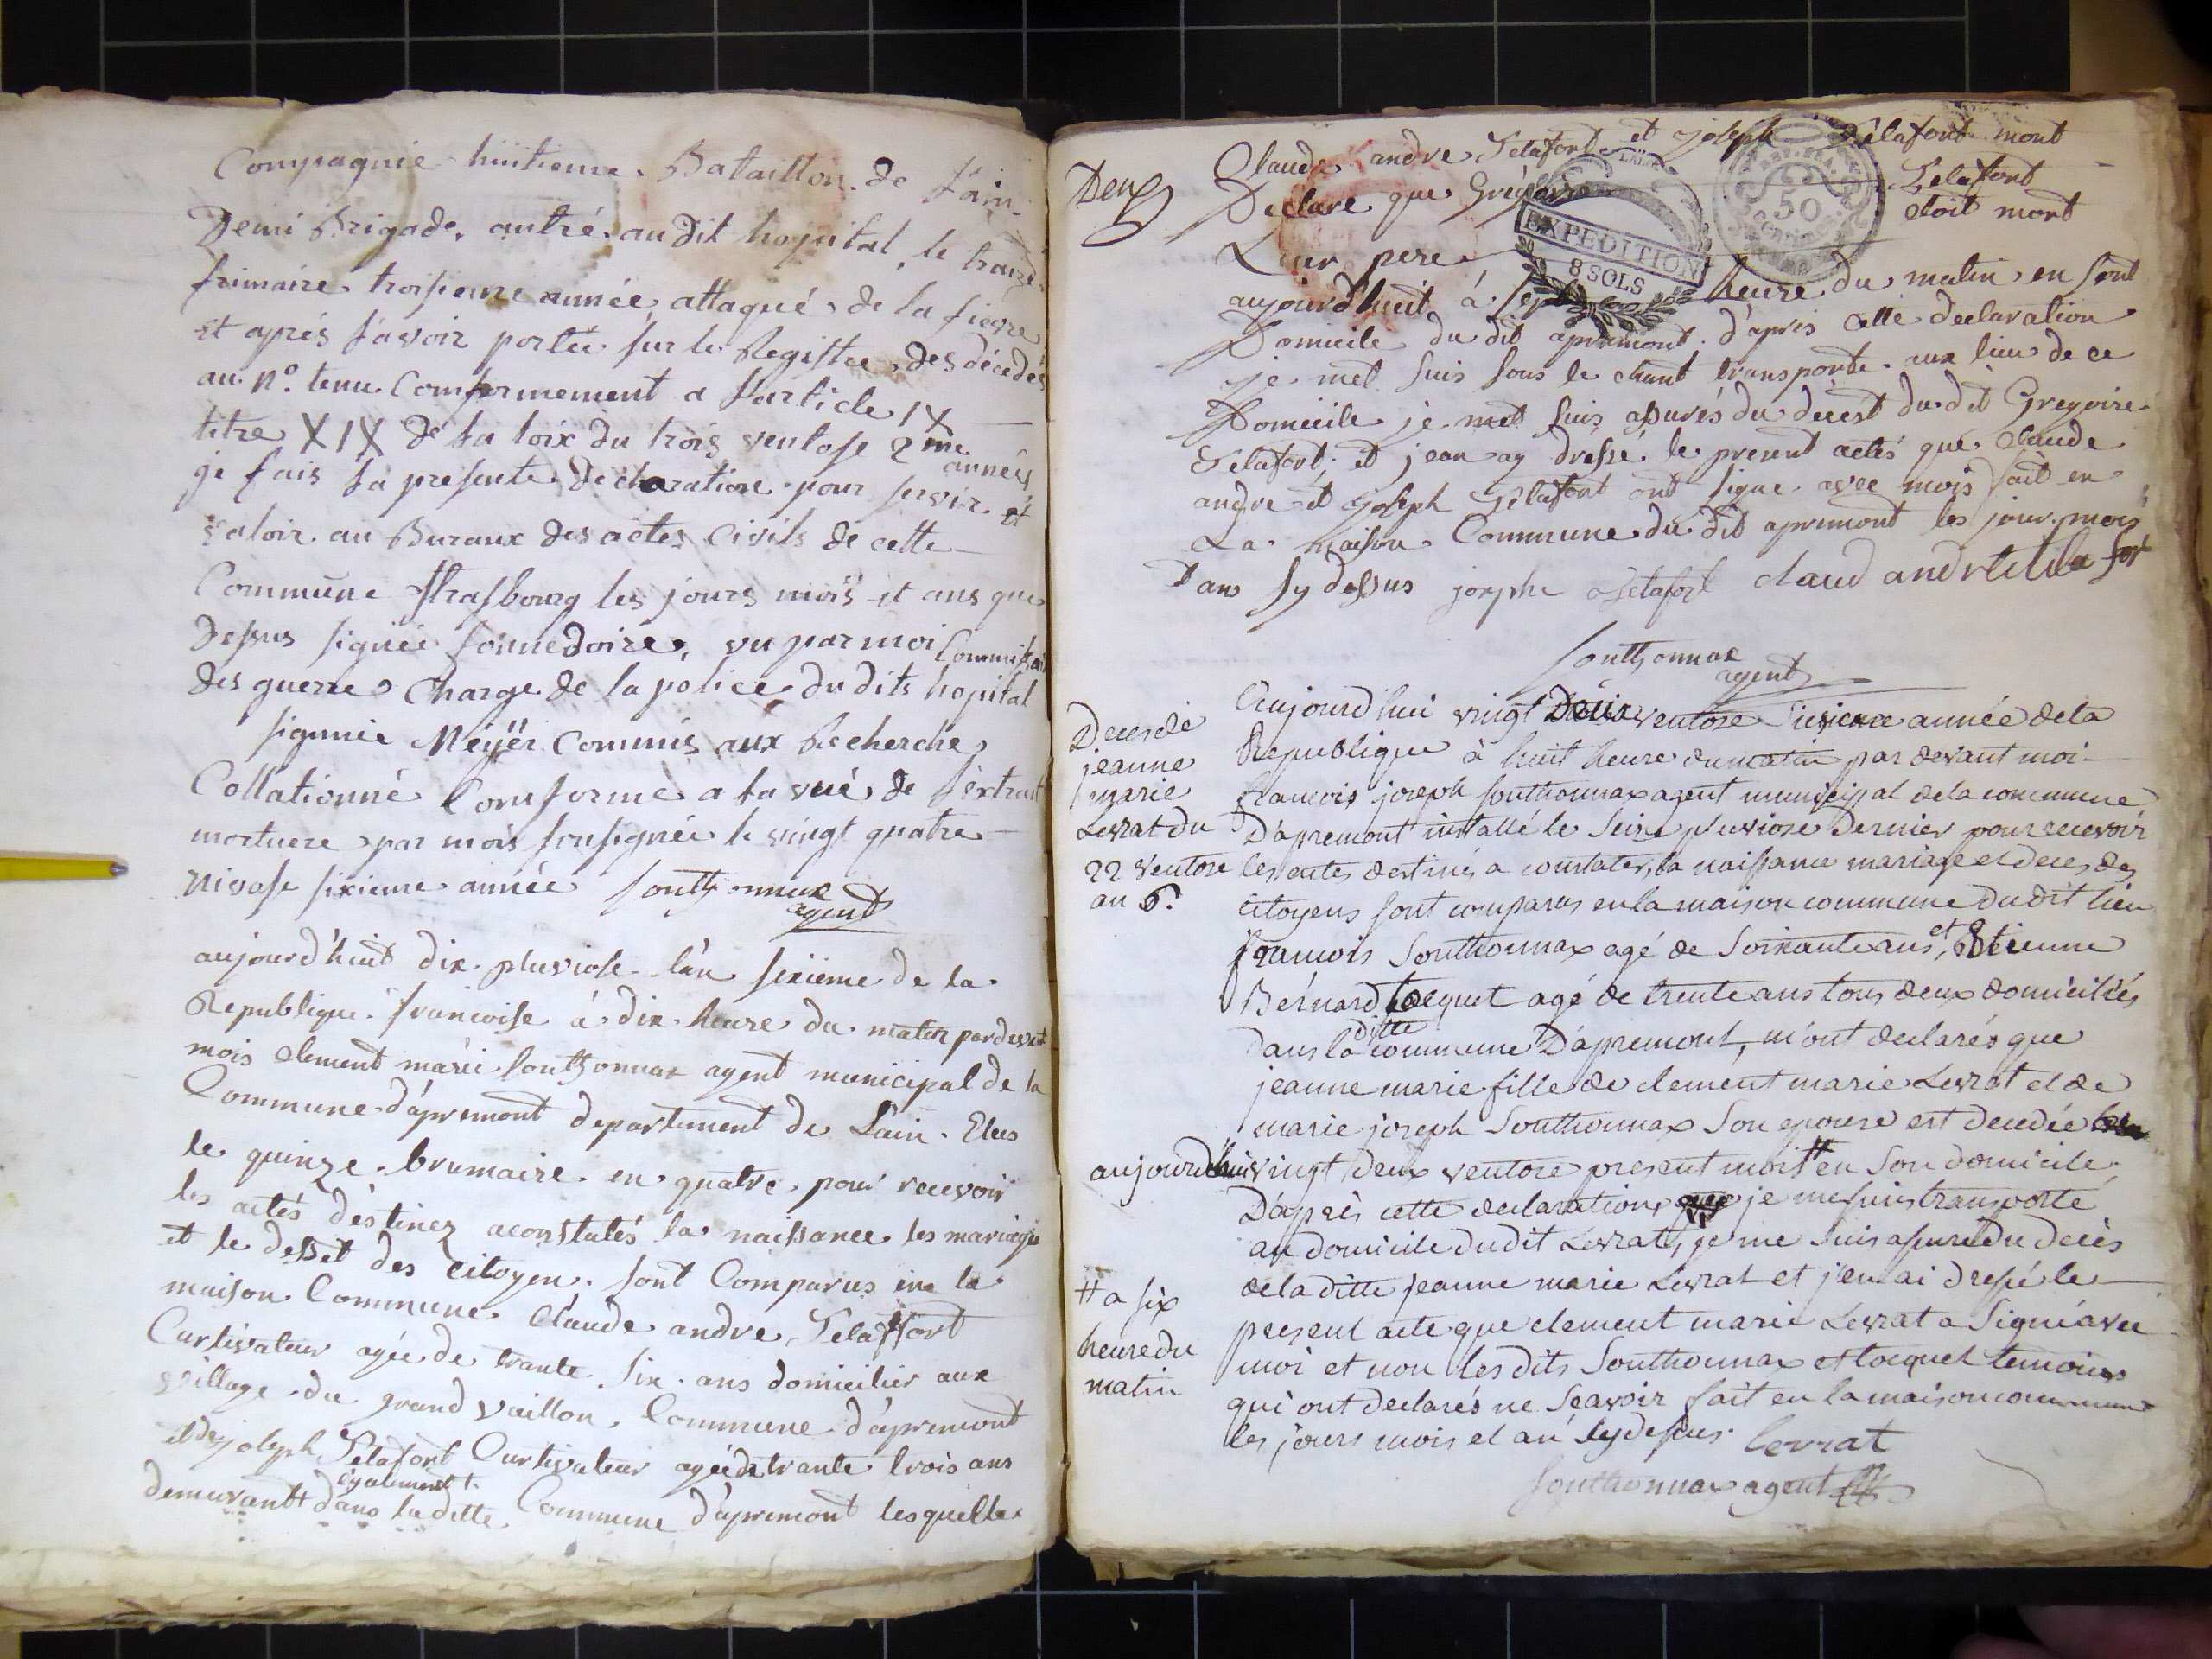 Compagnie huitieme Bataillon de l'ain
Demi Brigade, antré au dit hopital, le traize
frimaire troisieme année, attaqué de la fievre
et aprés l'avoir portée sur le Registre des décedés
au n°. tenu Comformement a l'article IX
titre XIX de la loix du trois ventose 2me année
je fais la presente declaration pour servir et
valoir au Buraux des actes Civils de cette
Commune strasbourg les jours mois et ans que
dessus signée sonnedoire, vu par moi Commissai
des guerre Charge de la police du dits hopital
signnie Méyër Commis aux Recherche
Collationné Comforme a la vué de l'éxtrait
mortuere par mois sousignée le vingt quatre
nivose sixieme année southonnax
agent
aujourd'huit dix pluviose l'an sixiéme de la
Republique francoise à dix heure du matin pardevant
mois clement marie southonnax agent municipal de la
Commune d'apremont departement de L'ain. Elus
le quinze brumaire en quatre pour recevoir
les actés déstinez aconstatés la naissance les mariage
et le desset des citoyen. sont Comparus en la
maison Commune Claude andre Telaffort
Curtivateur agée de trante six ans domicilier aux
village du grand vaillon, Commune d'apremont
et de joseph Telafort Curtivateur agée de trante trois ans
égalument
demurant dans la ditte Commune d'apremont lesquelle
Deux
Claude andre Telafort et joseph Télafort mont
Declare que Grégoire Telafort
Leur pere etoit mort
EXPEDITION
8 SOLS
50
aujourd'huit à sept heure du matin en sont
Domicile du dit apremont. d'apris cette declaration
je met suis sous le chant transporte aux lieu de ce
Domicile je met suis assurés du décest du dit Gregoire
Telafort; et jean ay dressé le present actés que claude
andre et joseph Télafort ont signe avec mois fait en
La maison Commune du dit apremont les jour mois
Dans sy dessus josphe Telafort claud andre tela fort
southonnax
agent
Deces de
jeanne
marie
Levrat du
22 ventose
an 6.
aujourd'hui vingt Deux ventose sixieme année de la
Republique à huit heure du matin par devant moi
francois joseph southonnax agent municipal de la commune
D'apremont installé le seize pluviose dernier pour recevoir
les actes destinés a constater, la naissance mariage et deces des
citoyens sont comparus en la maison commune du dit lieu
francois Southonnax agé de Soixante ans, et Etienne
Bernard tocquet agé de trente ans tous deux domiciliés
dans la ditte commune D'apremont, m'ont declarés que
jeanne marie fille de clement marie Levrat et de
marie joseph Southonnax Son epouse est decedée
aujourd'hui vingt deux ventose present mois # en Son domicile.
D'aprês cette declaration, je me suis transporté
au domicile dudit Levrat, je me suis assuré du decès
de la ditte jeanne marie Levrat et j'en ai dressé le
# a six
heure du
matin
present acte que clement marie Levrat a Signé avec
moi et non les dits Southonnax et tocquet temoins
qui ont declarés ne Scavoir fait en la maison commune
les jours mois et an sy dessus. levrat
Southonnax agent